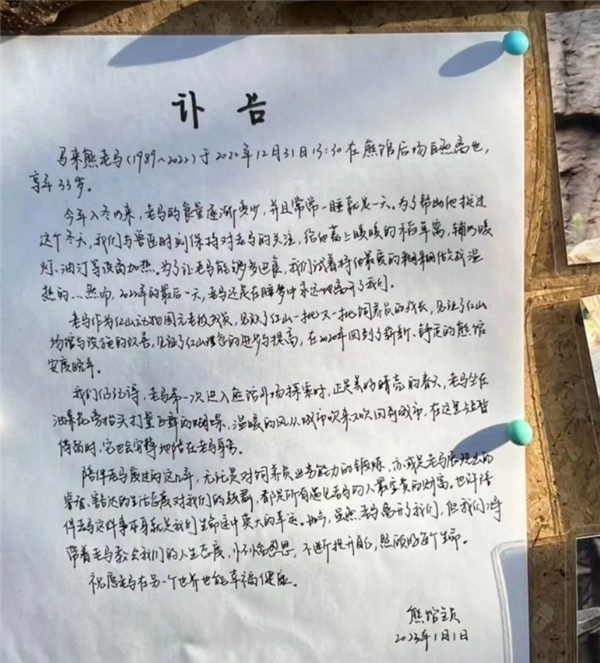 讣告
马来熊老马(1989~2022)于2022年12月31日13:30在熊馆后场自然离世,
享年33岁。
今年入冬以来,老马的食量逐渐变少,并且常常一睡就是一天。为了帮助他挺过
这个冬天,我们与兽医时刻保持对老马的关注,给他盖上暖暖的稻草窝,辅以暖
灯、油汀等设备加热。为了让老马能调节过食,我们试着将他最爱的糊糊做成温
热的…然而,2022年的最后一天,老马还是在睡梦中永远地离开了我们。
老马作为红山动物园元老级成员,见证了红山一批又一批饲养员的成长,见证了红山
场馆与设施的改善,见证了红山理念的进步与提高,在2020年回到了崭新、舒适的熊馆
安度晚年。
我们仍记得,老马第一次进入熊馆外场探索时,正是美好晴亮的春天,老马坐在
油菜花旁抬头打量飞舞的蝴蝶、温暖的风从城市吹来又吹回到城市,在这里短暂
停留时,它也会安静地落在老马身旁
陪伴老马度过的这几年,无论是对饲养员业务能力的锻炼,亦或是老马展现出的
豁达的生活态度对我们的鼓舞,都是所有遇见老马的人最宝贵的财富。也许陪
伴老马这件事本身就是我们生命途中莫大的幸运。如今,虽然老马离开了我们,但我们将
带着老马教会我们的人生态度,心怀感恩,不断提升自己,照顾好每个生命。
祝愿老马在另一个世界也能幸福健康。
熊馆主页
2023年1月1日